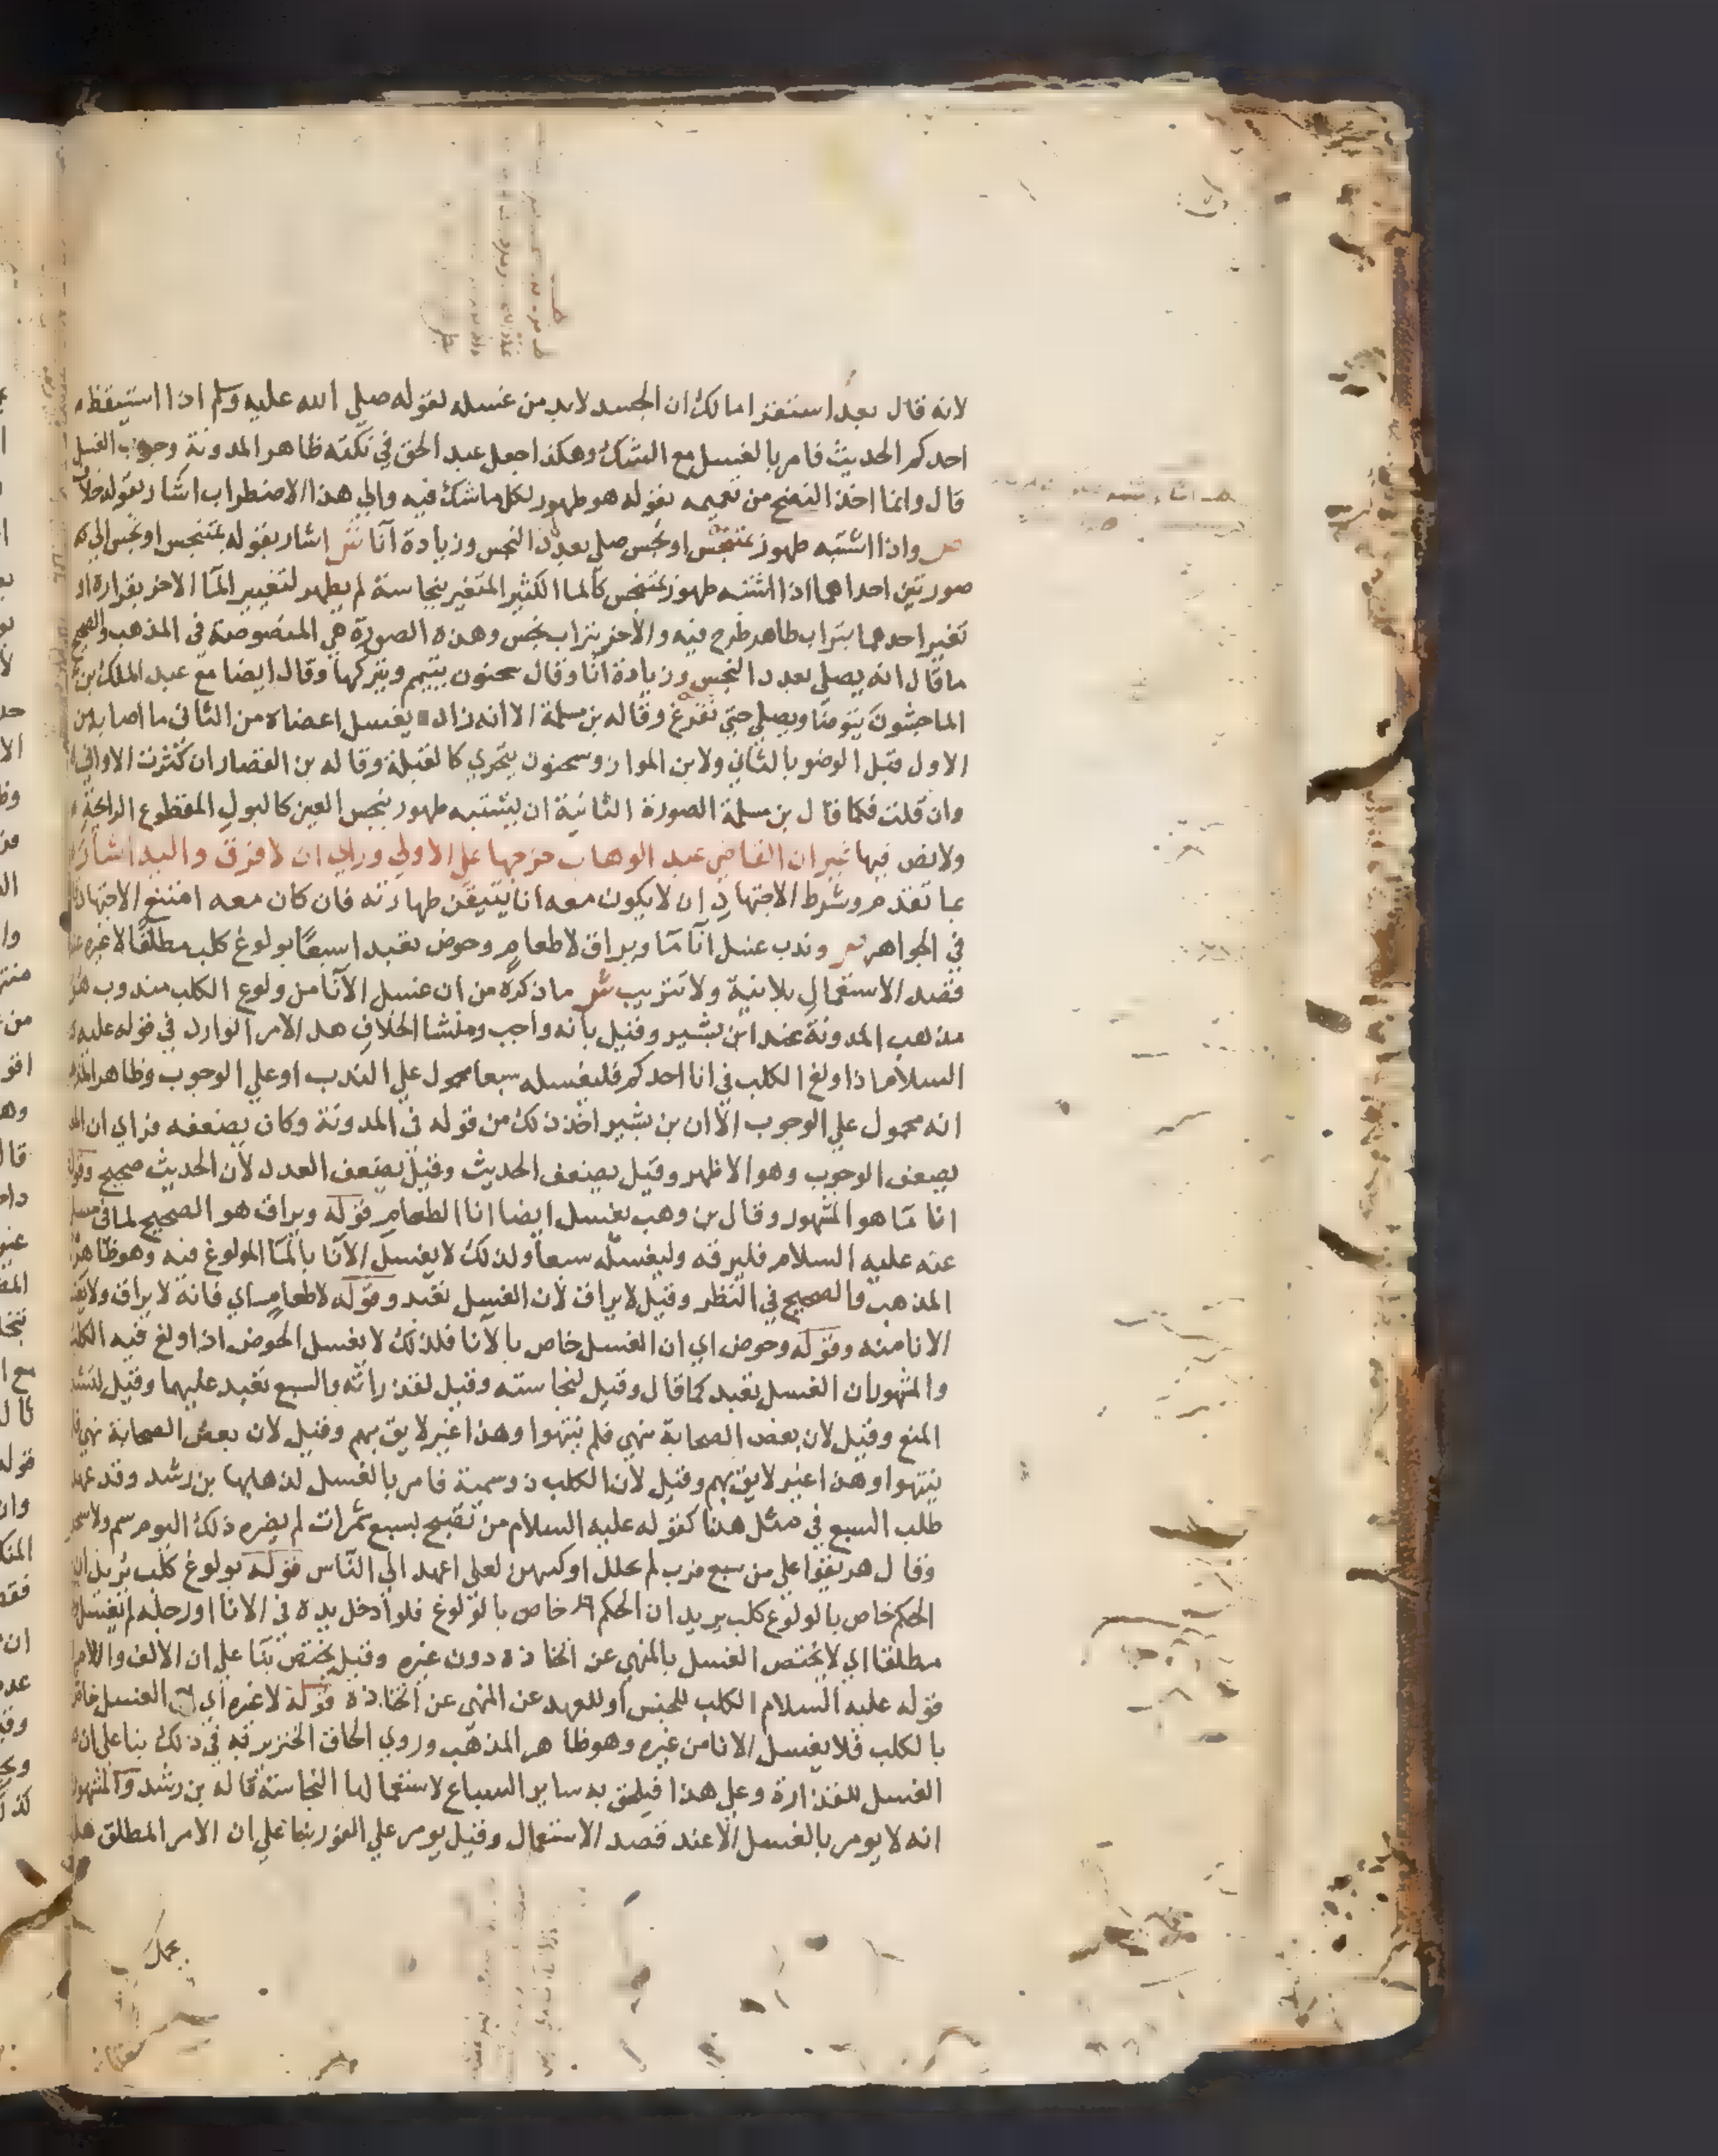 لانه قال بعد استقرا مالك ان الجسد لابد من غسله لقوله صلي الله عليه وسلم اذا استيقظ
احدكم الحديث فامر بالغسل مع الشك وهكذا جعل عبد الحق في نكته ظاهر المدونة وجوب الغسل
قال وانما اخذ النضح من تعميمه بقوله هو طهور لكل ما شك فيه والي هذا الاضطراب اشار بقوله خلاف
ص واذا اشتبه طهور بمتنجس او نجس صلي بعدد النجس وزيادة انا ش اشار بقوله بمتنجس او نجس الي
صورتين احداهما اذا اشتبه طهور بمتنجس كالما الكثير المتغير بنجاسة لم يطهر لتغيير الما الاخر بقراره او
تغير احدهما بتراب طاهر طرح فيه والاخر بتراب نجس وهذه الصورة هي المنصوصة في المذهب والصحيح
ما قال انه يصلي بعدد النجس وزيادة انا وقال سحنون يتيمم ويتركها وقال ايضا مع عبد الملك بن
الماجشون يتوضا ويصلي حتى تفرغ وقاله بن مسلمة الا انه زاد يغسل اعضاه من الثاني ما اصابه من
الاول قبل الوضو بالثاني ولابن المواز وسحنون يتحري كالقبلة وقاله بن القصار ان كثرت الاواني
وان قلت فكما قال بن مسلمة الصورة الثانية ان يشتبه طهور بنجس العين كالبول المقطوع الرائحة
ولا نص فيها غير ان القاضي عبد الوهاب خرجها علي الاولي وراي ان لا فرق واليه اشار
بما تقدم وشرط الاجتهاد ان لا يكون معه انا يتيقن طهارته فان كان معه امتنع الاجتهاد قاله
في الجواهر ص وندب غسل انا ما ويراق لا طعام وحوض تعبدا سبعا بولوغ كلب مطلقا لا غيره عند
قصد الاستعمال بلا نية ولا تتريب ش ما ذكره من ان غسل الانا من ولوغ الكلب مندوب هو
مذهب المدونة عند ابن بشير وقيل بانه واجب ومنشا الخلاف هل الامر الوارد في قوله عليه
السلام اذا ولغ الكلب في انا احدكم فليغسله سبعا محمول علي الندب او علي الوجوب وظاهر المذهب
انه محمول علي الوجوب الا ان بن بشير اخذ ذلك من قوله في المدونة وكان يضعفه فراي ان المراد
يضعف الوجوب وهو الاظهر وقيل يضعف الحديث وقيل يضعف العدد لان الحديث صحيح وقوله
انا ما هو المشهور وقال بن وهب يغسل ايضا انا الطعام قوله ويراق هو الصحيح لما في مسلم
عنه عليه السلام فليرقه وليغسله سبعا ولذلك لا يغسل الانا بالما المولوغ فيه وهو ظاهر
المذهب والصحيح في النظر وقيل لا يراق لان الغسل تعبد وقوله لا طعام اي فانه لا يراق ولا يغسل
الانا منه وقوله وحوض اي ان الغسل خاص بالانا فلذلك لا يغسل الحوض اذا ولغ فيه الكلب
والمشهور ان الغسل تعبد كما قال وقيل لنجاسته وقيل لقذراته والسبع تعبد عليهما وقيل لتشديد
المنع وقيل لان بعض الصحابة نهي فلم ينتهوا وهذا غير لايق بهم وقيل لان بعض الصحابة نهي فلم
ينتهوا وهذا غير لايق بهم وقيل لان الكلب ذو سمية فامر بالغسل لذهابها بن رشد وقد عهد
طلب السبع في مثل هذا كقوله عليه السلام من تصبح بسبع تمرات لم يضره ذلك اليوم سم ولا سحر
وقال هريقوا علي من سبع قرب لم تحلل اوكيتهن لعلي اعهد الي الناس قوله بولوغ كلب يريد ان
الحكم خاص بالولوغ كلب يريد ان الحكم خاص بالولوغ فلو ادخل يده في الانا او رجله لم يغسل
مطلقا اي لا يختص الغسل بالمنهي عن اتخاذه دون غيره وقيل يختص بنا علي ان الالف واللام في
قوله عليه السلام الكلب للجنس او للعهد عن المنهي عن اتخاذه قوله لا غيره اي الغسل خاص
بالكلب فلا يغسل الانا من غيره وهو ظاهر المذهب وروي الحاق الخنزير به في ذلك بنا علي ان
الغسل للقذارة وعلي هذا فيلحق به ساير السباع لاستعمالها النجاسة قاله بن رشد والمشهور
انه لا يومر بالغسل الا عند قصد الاستعمال وقيل يومر علي الفور بنا علي ان الامر المطلق هل
يحمل